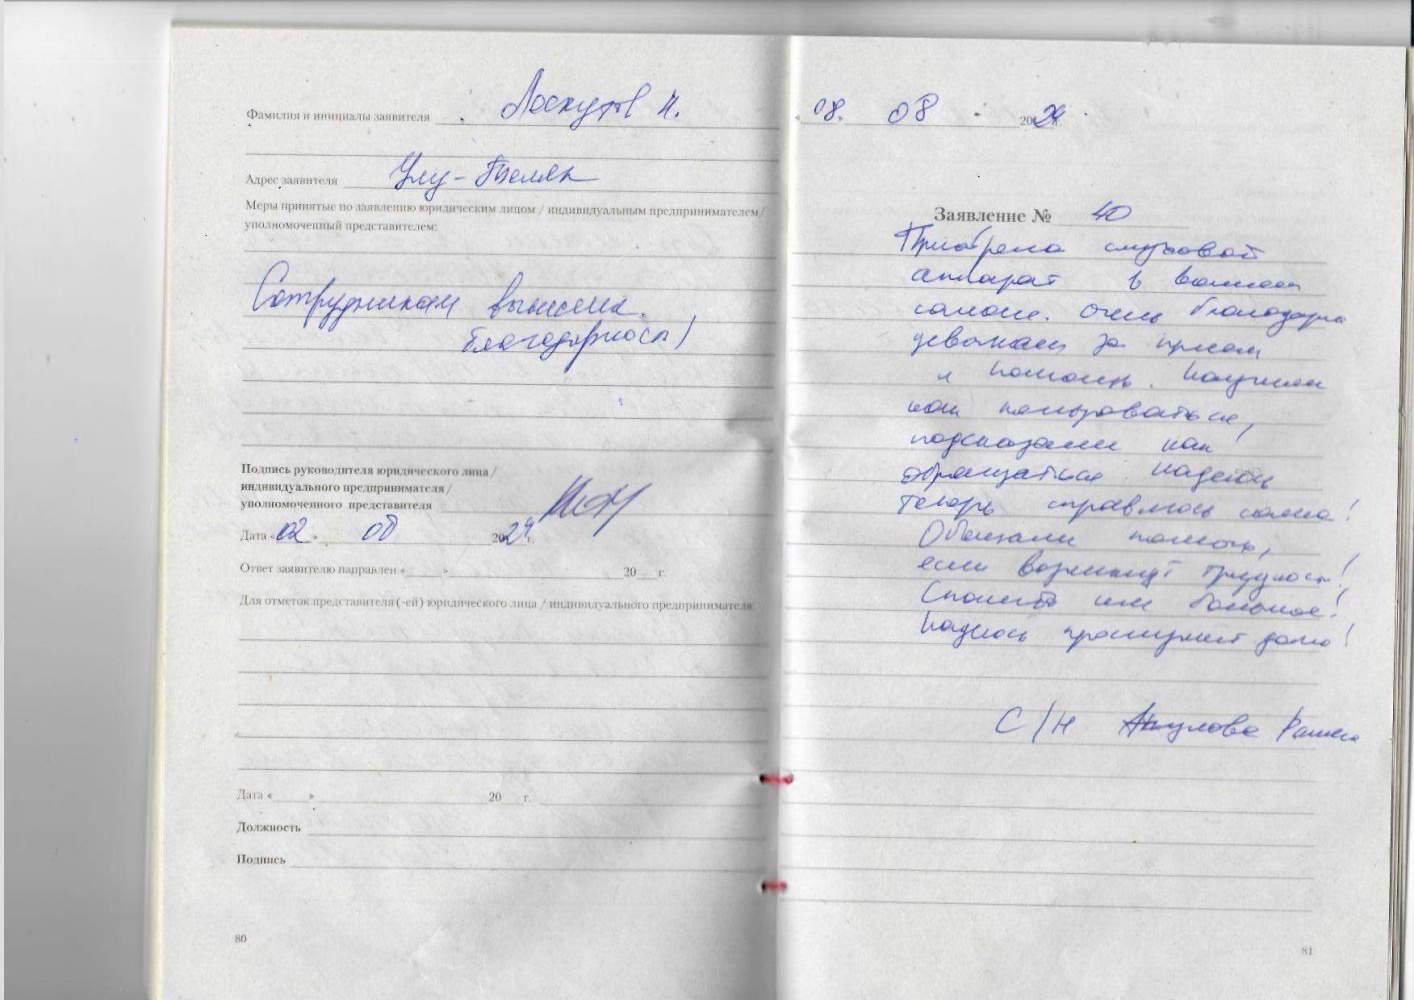 Фамилия и инициалы заявителя Лоскутов Н.
Адрес заявителя Улу-Теляк
Меры принятые по заявлению юридическим лицом / индивидуальным предпринимателем/
уполномоченный представителем:
Сотрудникам вынесена
благодарность)
Подпись руководителя юридического лица /
индивидуального предпринимателя /
уполномоченного представителя
Дата «02» 08 2024 г.
Ответ заявителю направлен «____» 20___ г.
Для отметок представителя(-ей) юридического лица / индивидуального предпринимателя
Дата «____» 20___ г.
Должность
Подпись
80
08. 08 2024
Заявление № 40
Приобрела слуховой
аппарат в вашем
салоне. Очень благодарна
девочкам за прием
и помощь. Научили
как пользоваться,
подсказали как
обращаться. Надеюсь
теперь справлюсь сама!
Обещали помочь,
если возникнут трудности!
Спасибо им большое!
Надеюсь прослужит долго!
С/Н Акулова
81